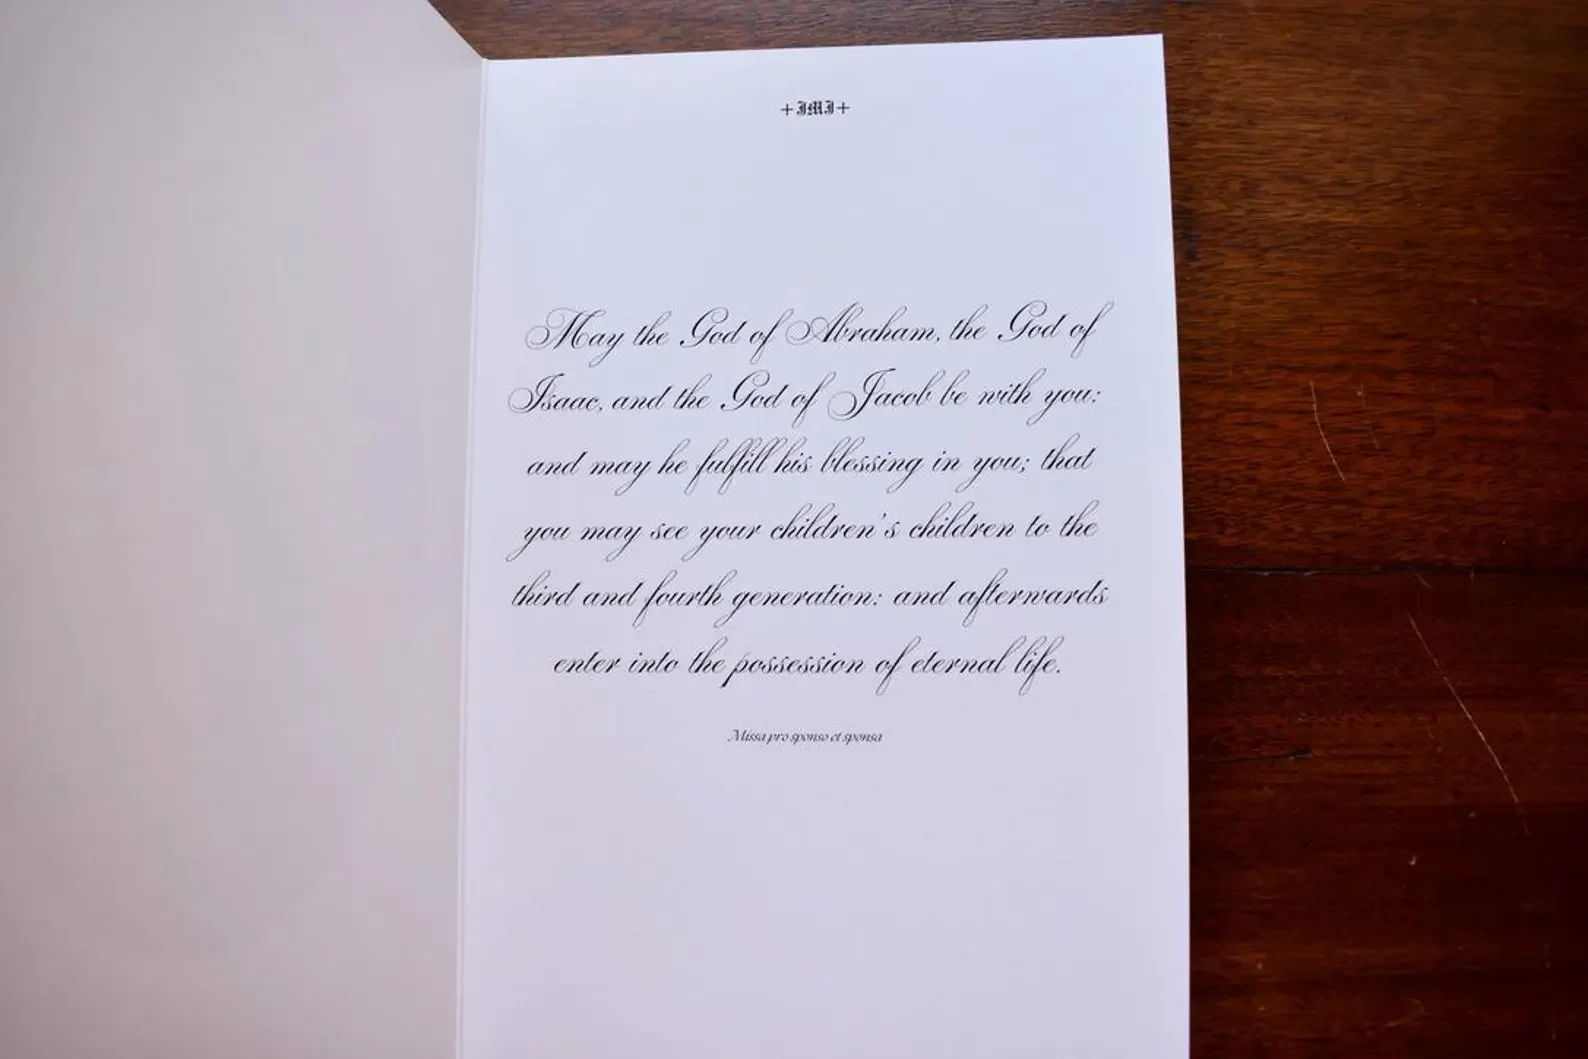 +JMJ+
May the God of Abraham, the God of
Isaac, and the God of Jacob be with you:
and may he fulfill his blessing in you; that
you may see your children's children to the
third and fourth generation: and afterwards
enter into the possession of eternal life.
Missa pro sponso et sponsa